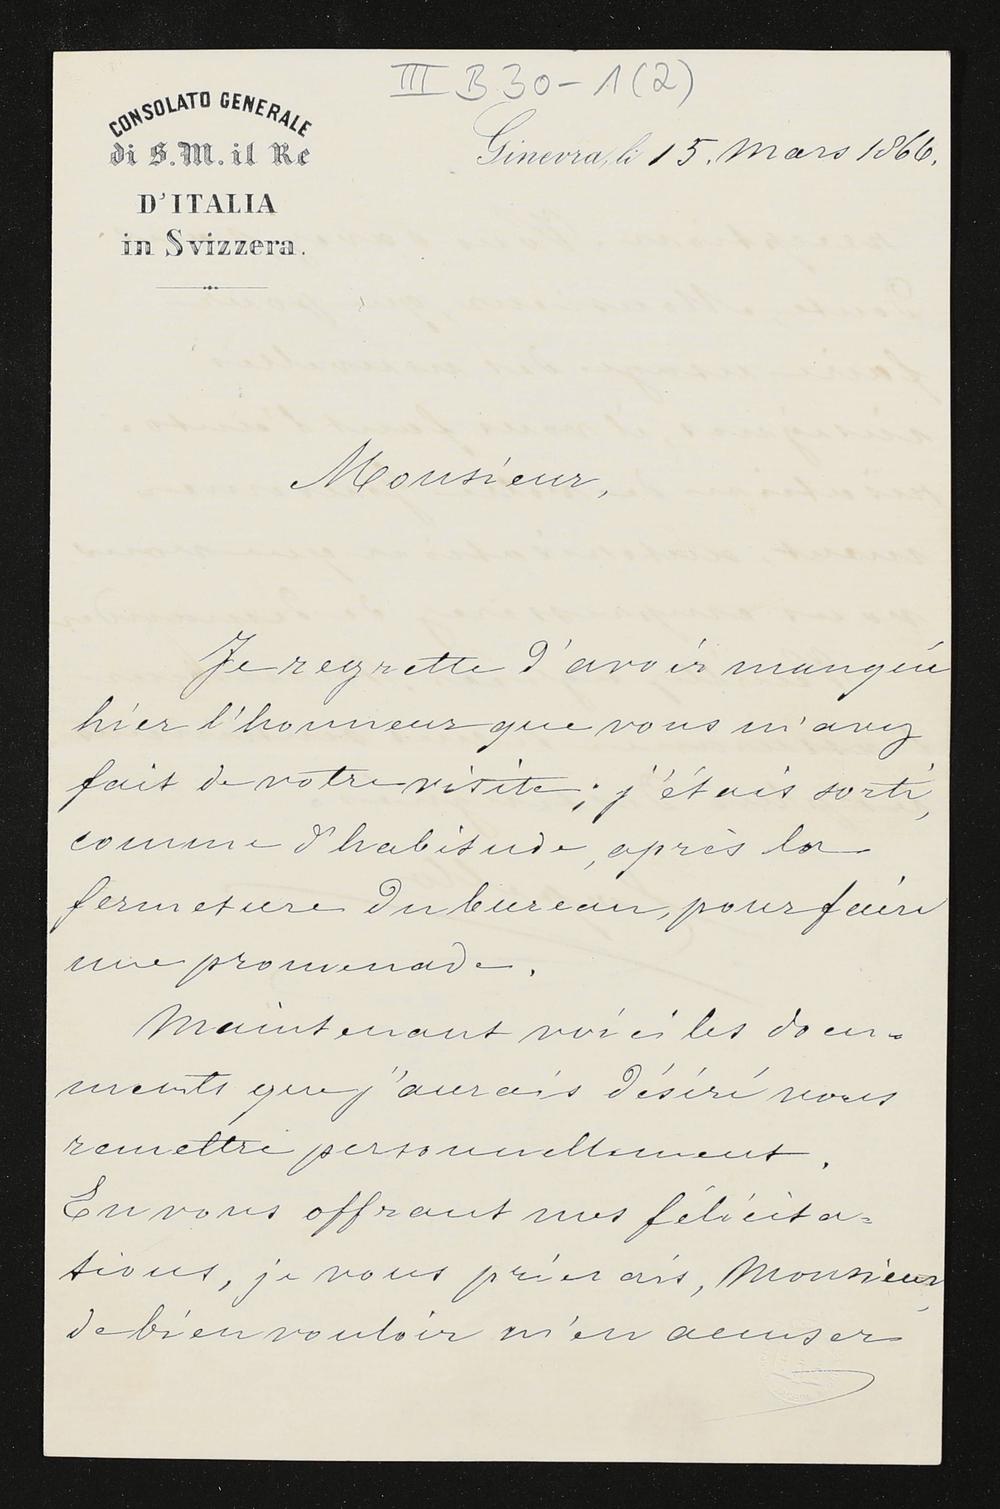 III B 30 - 1 (2)
CONSOLATO GENERALE
di S. M. il Re
D'ITALIA
in Svizzera.
Ginevra, li 15. Mars 1866.
Monsieur,
Je regrette d'avoir manquée
hier l'honneur que vous m'avez
fait de votre visite; j'étais sorti,
comme d'habitude, après la
fermeture du bureau, pour faire
une promenade.
Maintenant voici les docu-
ments que j'aurais désiré vous
remettre personnellement.
En vous offrant mes félicita=
tions, je vous prierais, Monsieur,
de bien vouloir m'en accuser